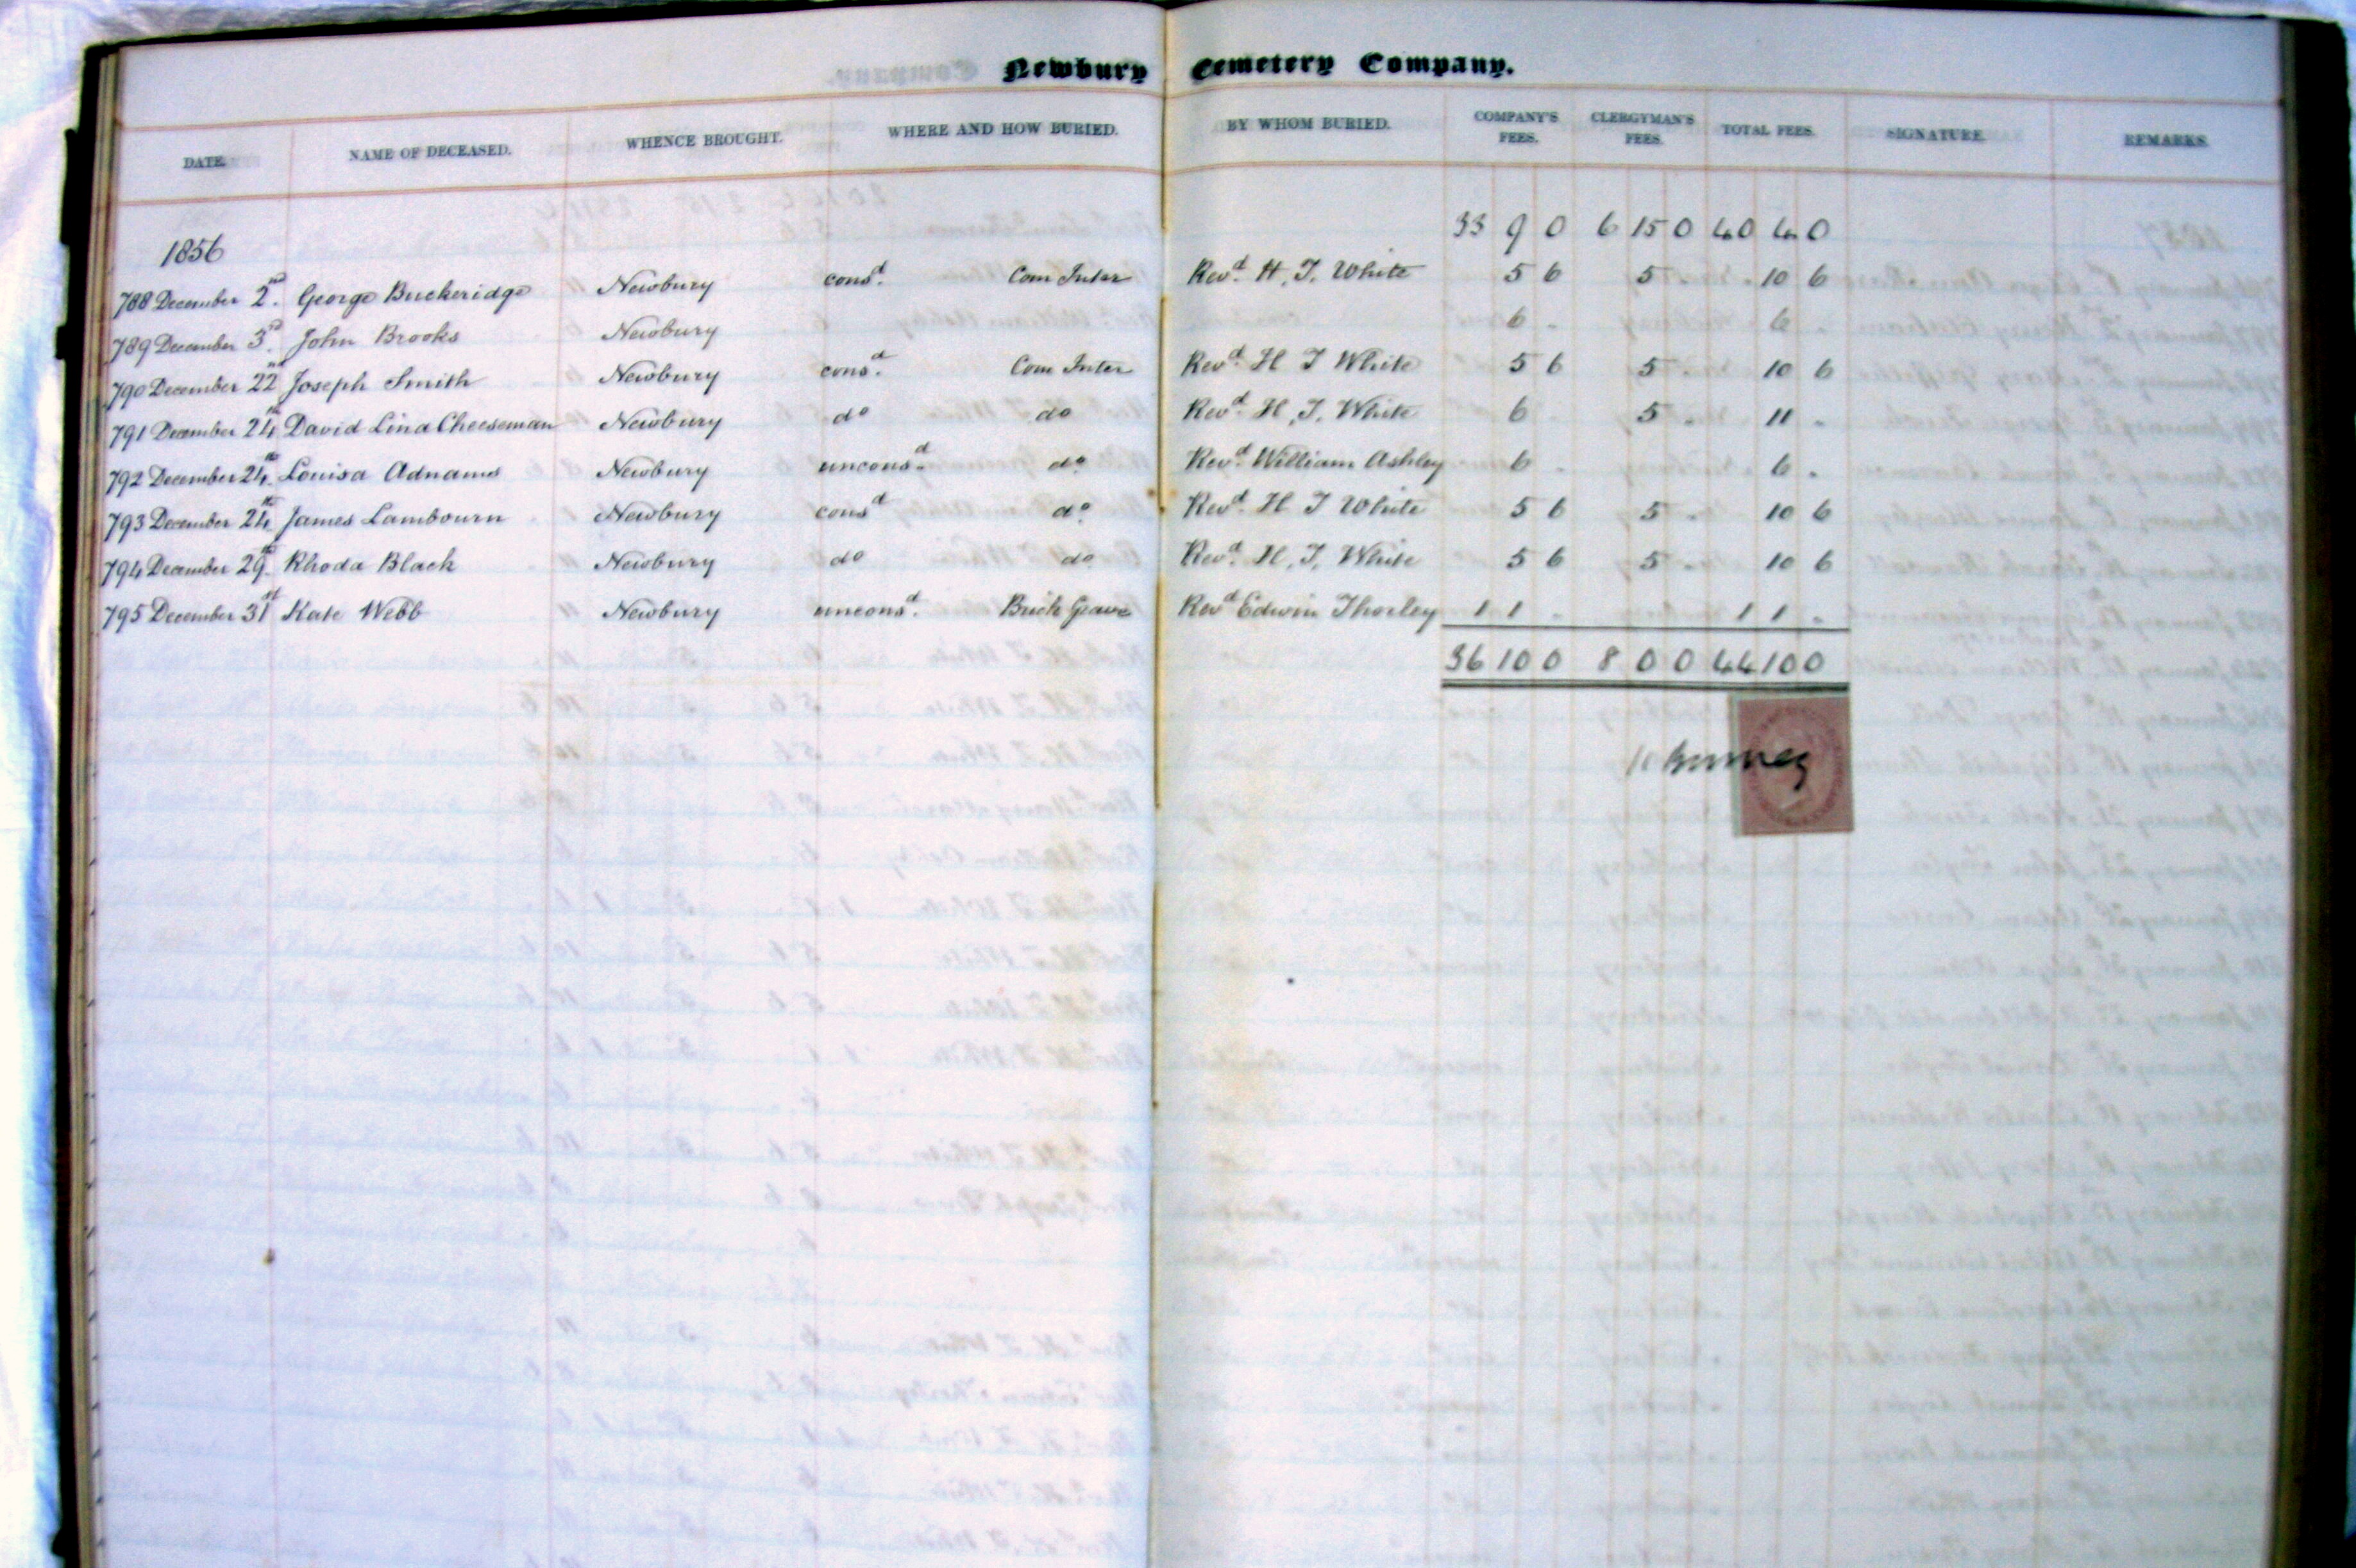 Newbury Cemetery Company.
DATE. NAME OF DECEASED. WHENCE BROUGHT. WHERE AND HOW BURIED. BY WHOM BURIED. COMPANY'S FEES. CLERGYMAN'S FEES. TOTAL FEES. SIGNATURE. REMARKS
33 9 0 6 15 0 40 4 0
1856
788 December 2nd. George Buckeridge Newbury consd. Com Inter Revd. H. J. White 5 6 5 - 10 6
789 December 3rd. John Brooks Newbury 6 - 6 -
790 December 22nd Joseph Smith Newbury consd. Com Inter Revd. H J White 5 6 5 - 10 6
791 December 24th David Lina Cheeseman Newbury do do Revd. H. J. White 6 - 5 - 11 -
792 December 24th. Louisa Adnams Newbury unconsd. do Revd. William Ashley 6 - 6 -
793 December 24th James Lambourn Newbury consd do Revd. H J White 5 6 5 - 10 6
794 December 29th. Rhoda Black Newbury do do Revd. H. J. White 5 6 5 - 10 6
795 December 31st Kate Webb Newbury unconsd. Brick Grave Revd Edwin Thorley 1 1 - 1 1 -
36 10 0 8 0 0 44 10 0